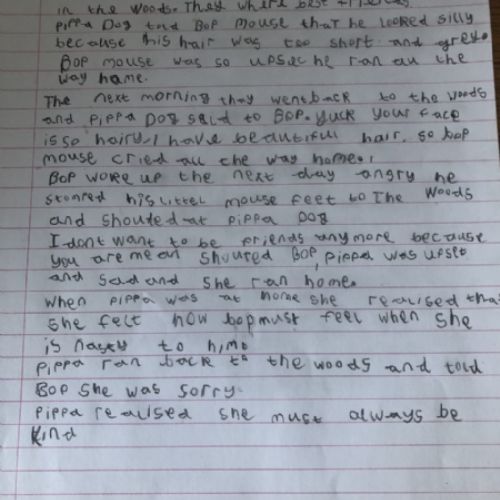 in the woods. They where best friends.
Pippa Dog told Bop mouse that he looked silly
because his hair was too short and grey.
Bop mouse was so upset he ran all the
way home.
The next morning they went back to the woods
and Pippa Dog said to Bop. Yuck your face
is so hairy, I have beautiful hair. so bop
mouse cried all the way home.
Bop woke up the next day angry he
stomed his littel mouse feet to The woods
and shouted at Pippa Dog
I dont want to be friends anymore because
you are mean shouted Bop, Pippa was upset
and sad and she ran home.
When Pippa was at home she realised tha
she felt how bop must feel when she
is nasty to him.
Pippa ran back to the woods and told
Bop she was sorry.
Pippa realised she must always be
kind